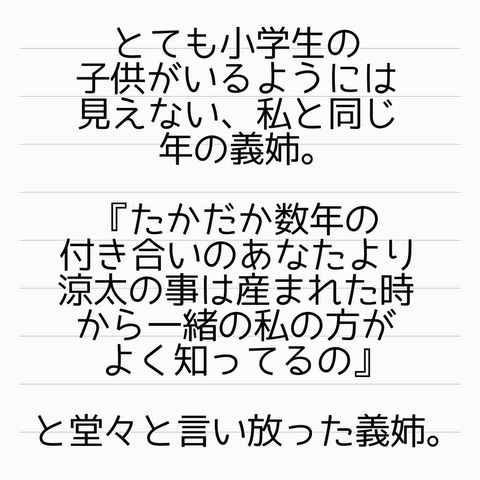 とても小学生の
子供がいるようには
見えない、私と同じ
年の義姉。
『たかだか数年の
付き合いのあなたより
涼太の事は産まれた時
から一緒の私の方が
よく知ってるの』
と堂々と言い放った義姉。